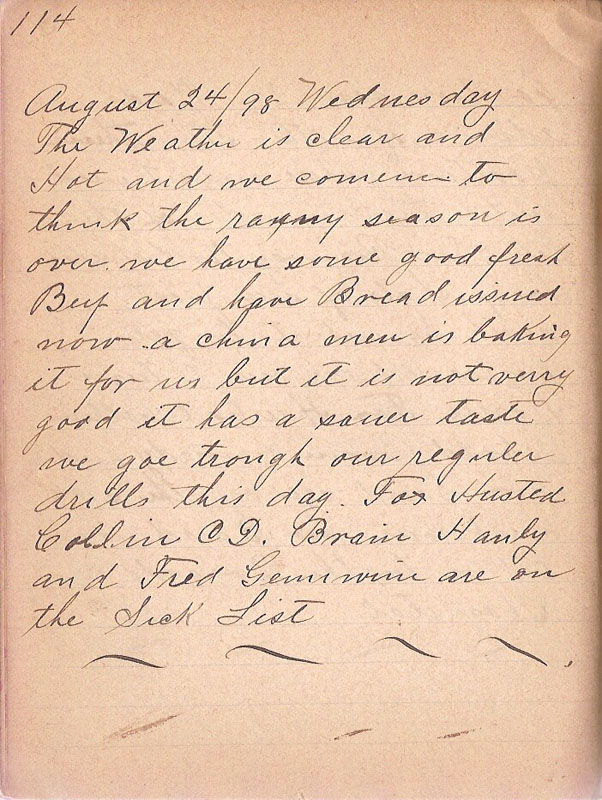 114
August 24/98 Wednesday
The Weather is clear and
Hot and we comenc to
think the rainny season is
over. we have some good fresh
Beef and have Bread issued
now a china men is baking
it for us but it is not verry
good it has a sauer taste
we goe trough our reguler
drills this day. Fox Husted
Collin C D. Brain Hanly
and Fred are on
the Sick List